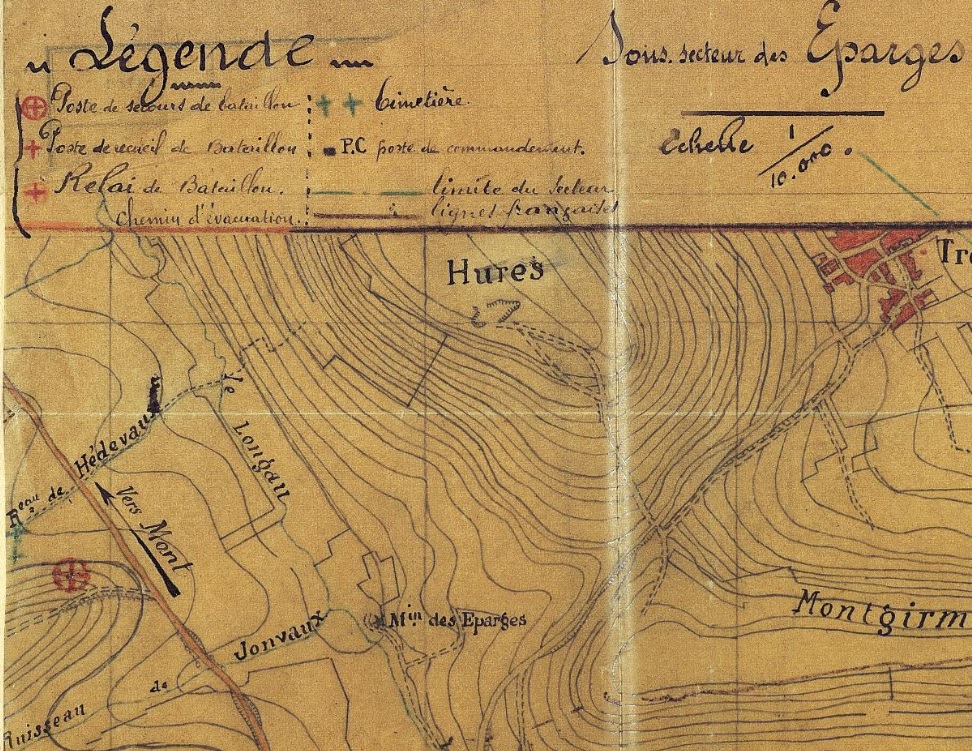 Légende
Sous. secteur des Eparges
Poste de secours de bataillon
Cimetière.
Poste de recueil de Bataillon
P.C poste de commandement.
Echelle 1/10.000.
Relai de Bataillon.
limite du Secteur
Chemin d'évacuation.
lignes françaises
Hures
Tre
le Longau
Reau de Hédevaux
Vers Mont
Min des Eparges
Montgirm
Ruisseau de Jonvaux